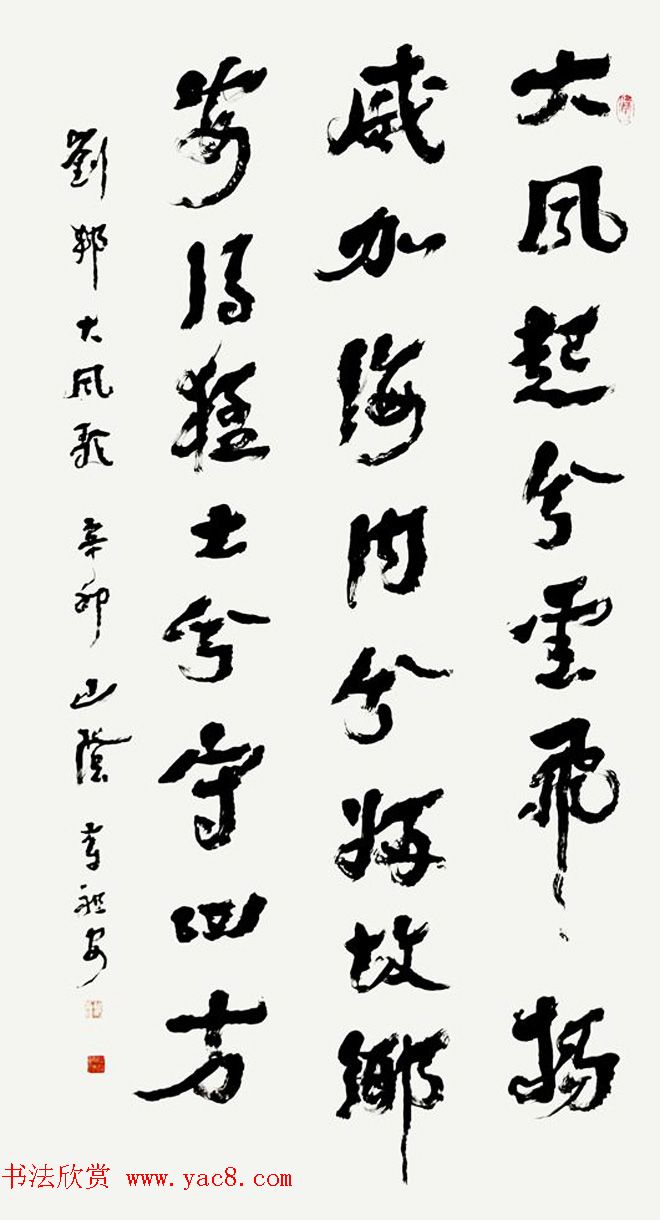 大風起兮雲飛揚
威加海内兮歸故鄉
安得猛士兮守四方
劉邦大風歌 辛卯 山陰
书法欣赏 www.yac8.com